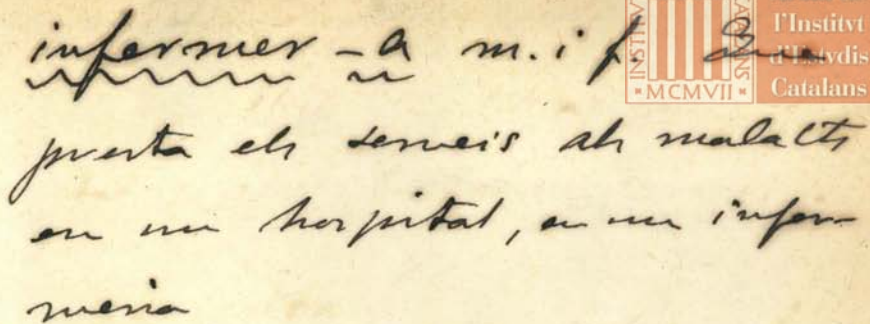 infermer -a m. i f. Que
presta els serveis als malalts
en un hospital, en una infer-
meria
INSTITV
MCMVII
ANS
l'Institvt
d'Estvdis
Catalans